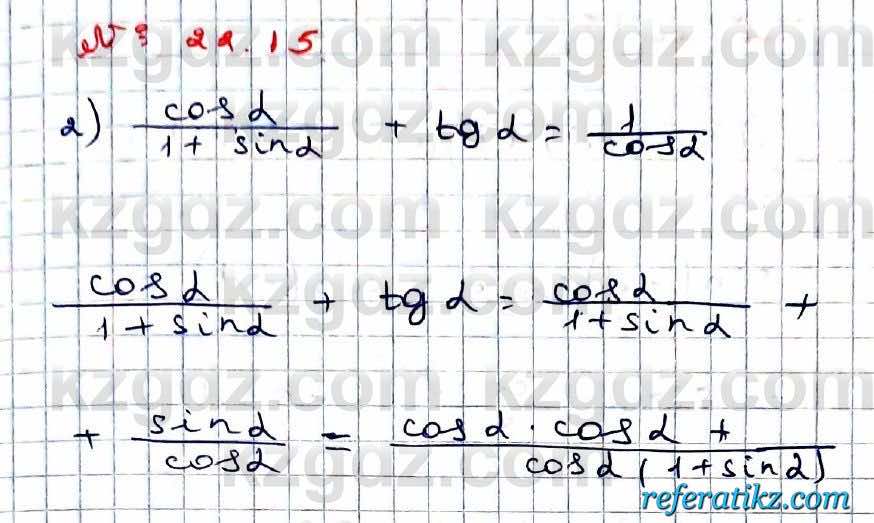 № 22.15
2) cosα / (1 + sinα) + tg α = 1 / cosα
cosα / (1 + sinα) + tg α = cosα / (1 + sinα) +
+ sinα / cosα = cosα · cosα + / cosα (1 + sinα)
kzgdz.com
referatikz.com